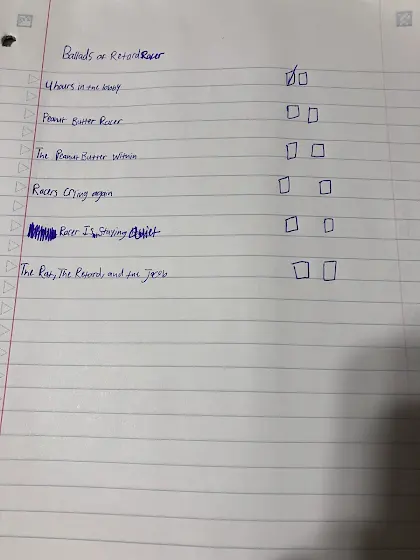 Ballads of Retord Racer
4 hours in the lobby
Peanut Butter Racer
The Peanut Butter Within
Racers Crying again
Racer Is Staying Quiet
The Rat, The Retord, and the Jacob